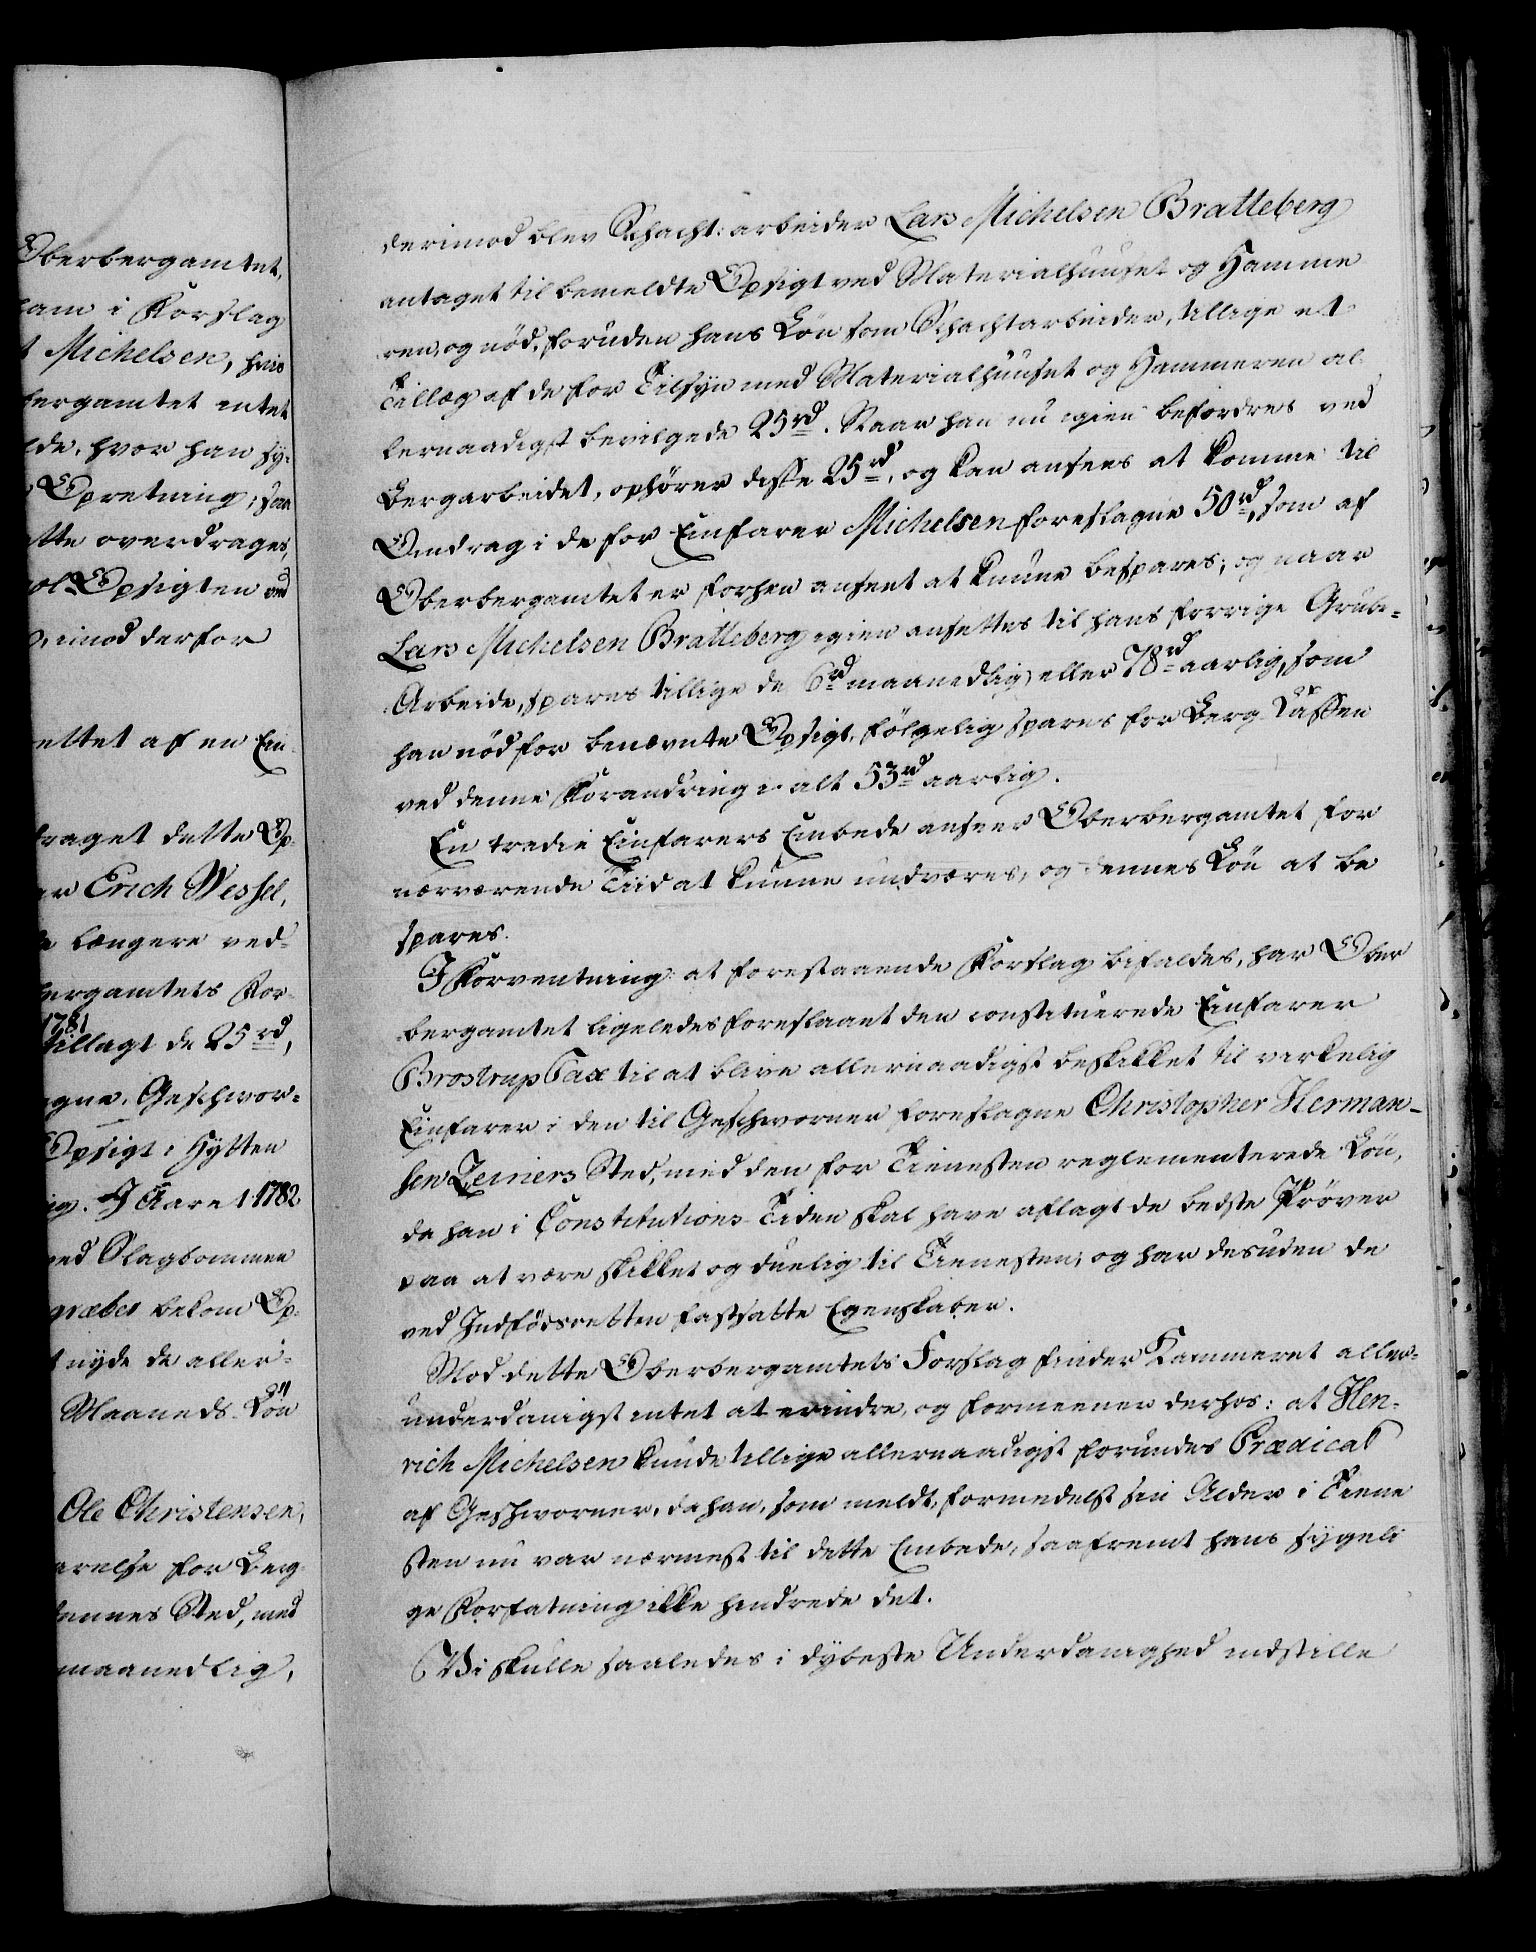 Oberbergamtet,
ham i Forslag
t Michelsen, hvis
bergamtet intet
lde, hvor han sy-
Opretning; saa
tte overdrages,
ol Opsigten ved
imod derfor
ettet af en Ein
draget dette Op-
er Erich Wessel,
e længere ved-
bergamtets For-
1781
tillagt de 25 rd,
gne. Geschwor-
Opsigt i Hytten
ig. I Aaret 1782
ved Slagbommen
græber bekom Op-
t nyde de aller-
Maaneds-Løn
Ole Christensen,
arelse for Berg-
dennes Sted, med
maanedlig,
derimod blev Schacht-arbeider Lars Michelsen Bratteberg
antaget til bemeldte Opsigt ved Materialhuuset og Hamme
ren, og nød, foruden hans Løn som Schachtarbeider, tillige et
Tillæg af de for Tilsyn med Materialhuuset og Hammeren al
lernaadigst bevilgede 25 rd. Naar han nu igien befordres ved
Bergarbeidet, ophører disse 25 rd, og kan ansees at komme til
Omdrag i de for Einfarer Michelsen foreslagne 50 rd, som af
Oberbergamtet er forhen anseet at kunne bespares; og naar
Lars Michelsen Bratteberg igien ansettes til hans forrige Grube-
Arbeide, spares tillige de 6 rd maanedlig eller 78 rd aarlig, som
han nød for benævnte Opsigt, følgelig spares for Berg-Cassen
ved denne Forandring i alt 53 rd aarlig.
En tredie Einfarers Embede anseer Oberbergamtet for
nærværende Tiid at kunne undværes, og dennes Løn at be
spares.
I Forventning at forestaaende Forslag bifaldes, har Ober
bergamtet ligeledes foreslaaet den constituerede Einfarer
Brostrup Tax til at blive allernaadigst beskikket til virkelig
Einfarer i den til Geschworner foreslagne Christopher Herman-
sen Zeiners Sted, med den for Tienesten reglementerede Løn,
da han i Constitutions-Tiden skal have aflagt de bedste Prøver
paa at være skikket og duelig til Tienesten; og har desuden de
ved Indfødsretten fastsatte Egenskaber.
Mod dette Oberbergamtets Forslag finder Kammeret aller-
underdanigst intet at erindre, og formeener derhos: at Hen-
rich Michelsen kunde tillige allernaadigst forundes Prædicat
af Geschworner, da han, som meldt, formedelst sin Alder i Tiene
sten nu var nærmest til dette Embede, saafremt hans sygeli
ge Forfatning ikke hindrede det.
Vi skulle saaledes i dybeste Underdanighed indstille